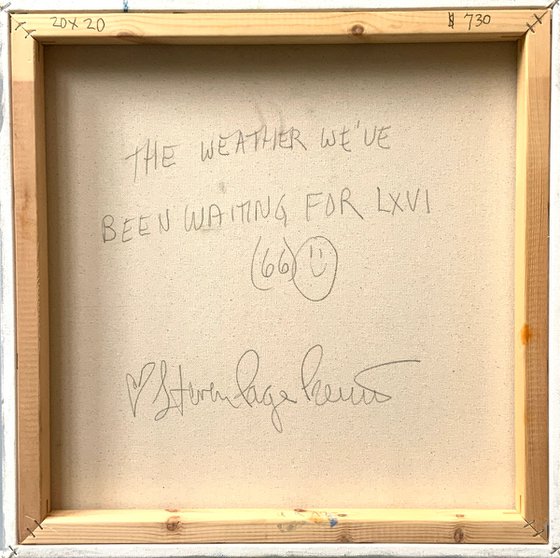 20X20
$ 730
THE WEATHER WE'VE
BEEN WAITING FOR LXVI
(66)
Steven Page Prewitt